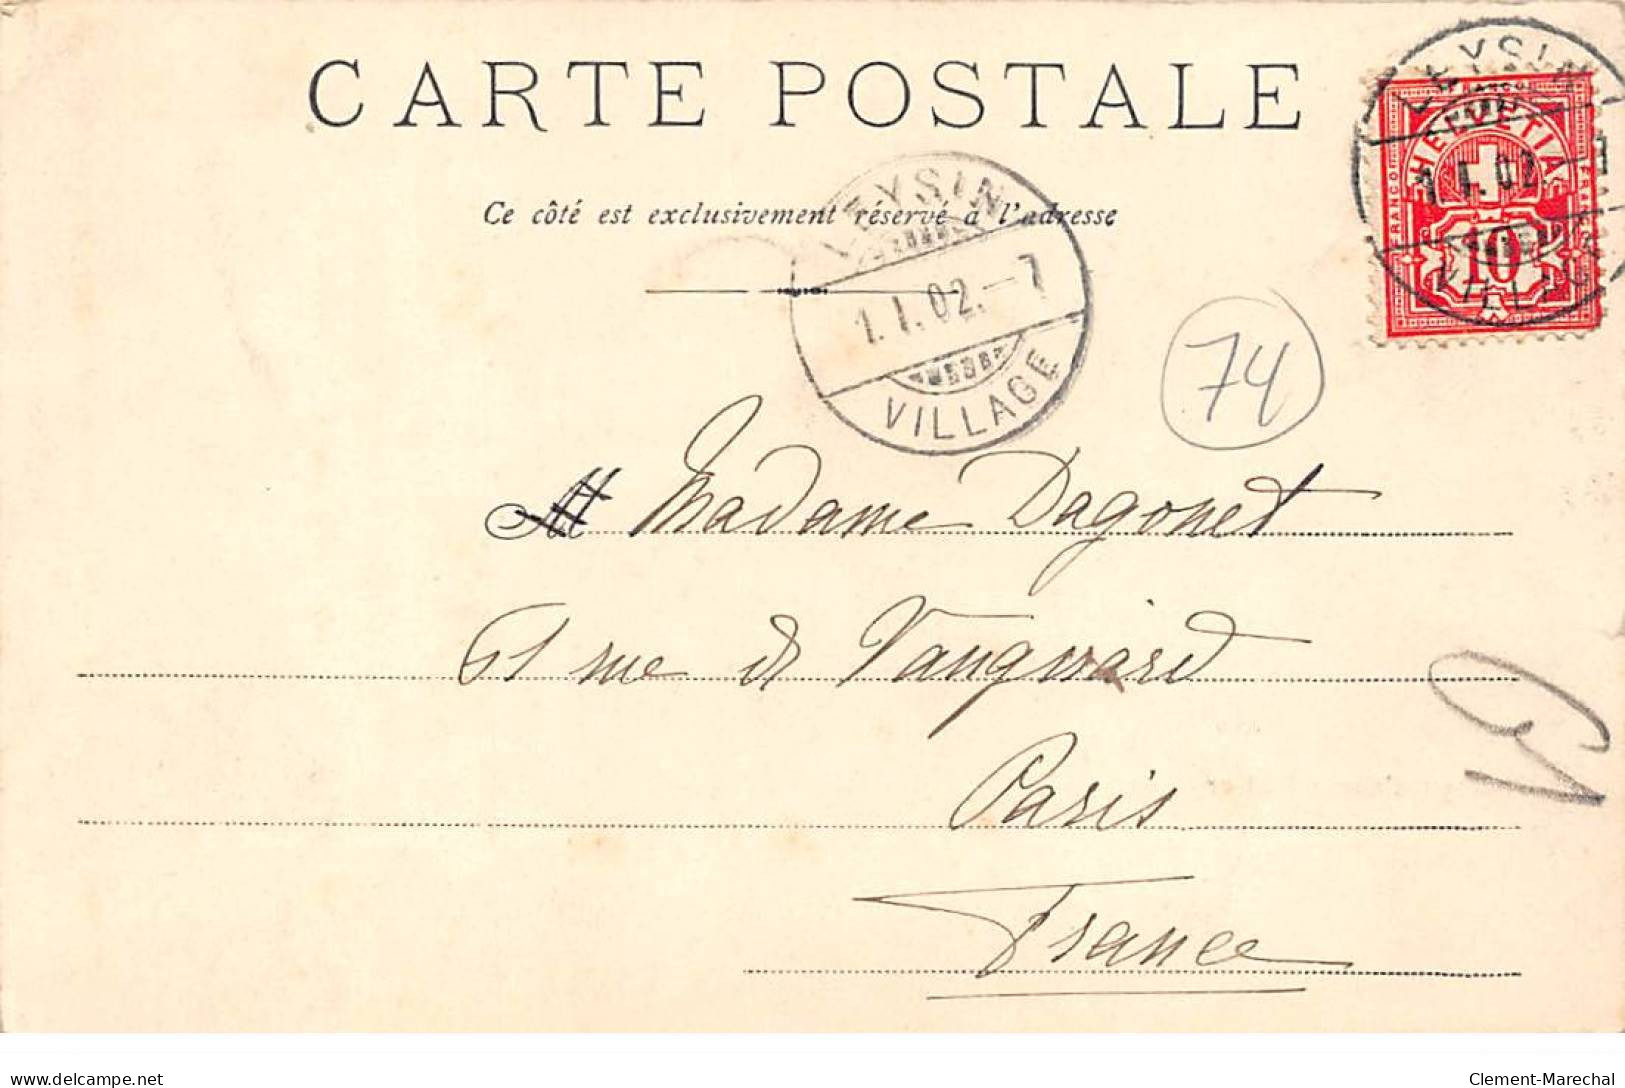 CARTE POSTALE
Ce côté est exclusivement réservé à l'adresse
LEYSIN
1.I.02.-7
VILLAGE
LEYSIN
1.I.02.-7
VILLAGE
HELVETIA
FRANCO
FRANCO
10
74
M Madame Dagonet
61 rue de Vaugirard
Paris
France
delcampe.net
Clement-Marechal